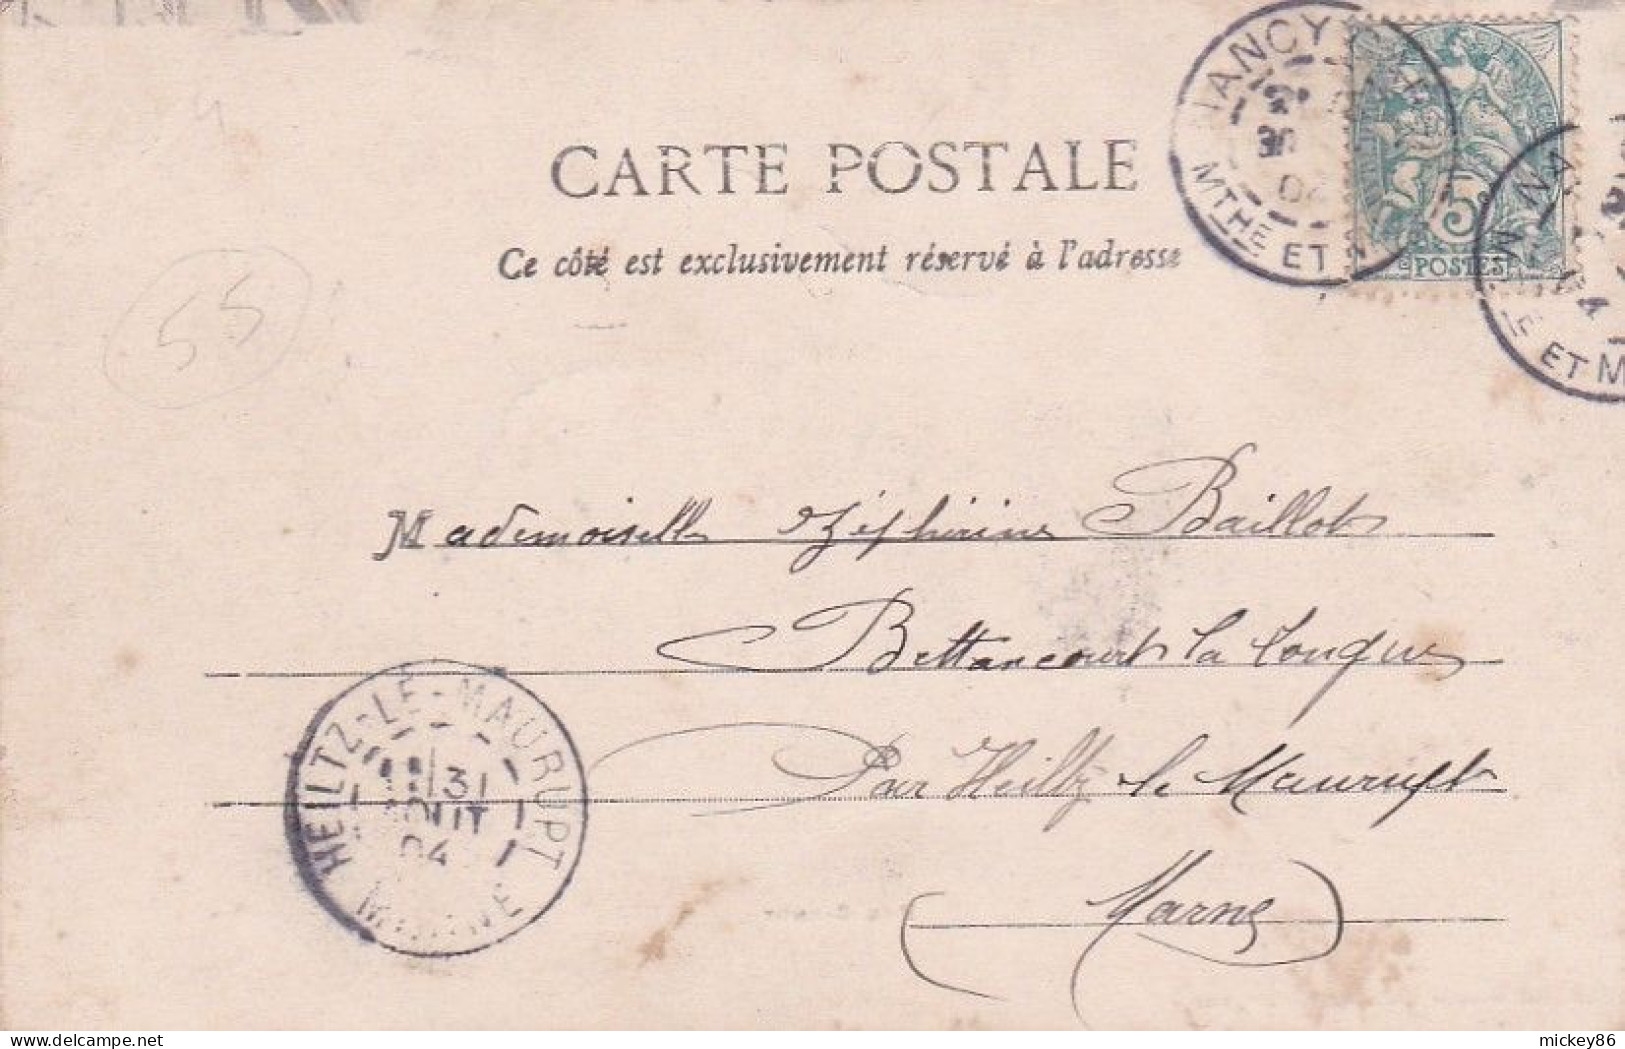 CARTE POSTALE
Ce côté est exclusivement réservé à l'adresse
NANCY
30
04
MTHE ET M
5c
POSTES
ET M
55
Mademoiselle Zéphirine Baillot
Bettancourt la Longue
Par Heiltz le Maurupt
(Marne)
HEILTZ-LE-MAURUPT
31
AOUT
04
MARNE
mickey86